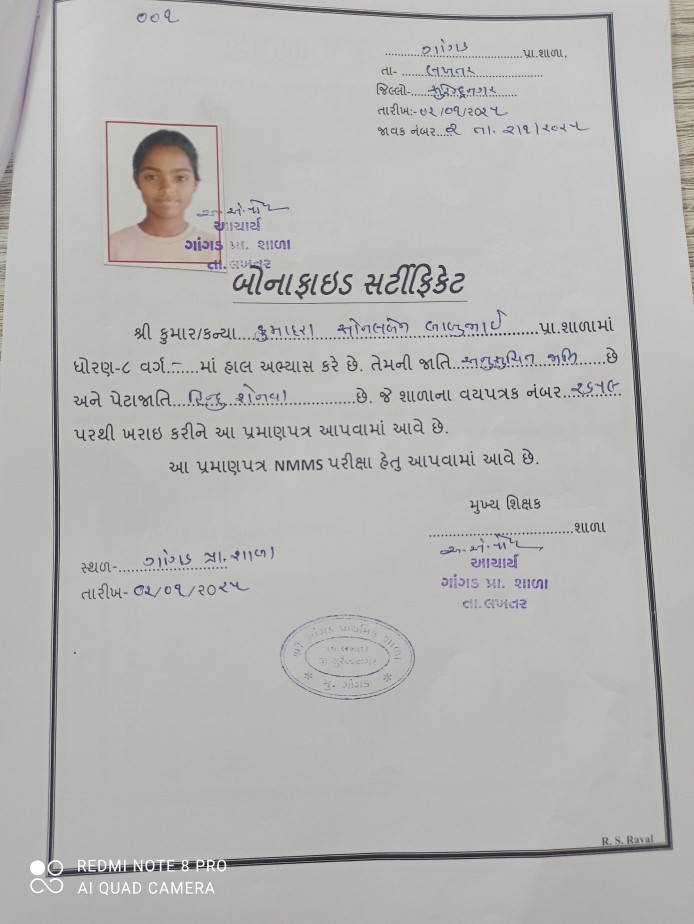 ૦૦૨
ગાંગડ પ્રા.શાળા,
તા- લખતર
જિલ્લો- સુરેન્દ્રનગર
તારીખ:- ૦૨/૦૧/૨૦૨૫
જાવક નંબર...૨ તા. ૨/૧/૨૦૨૫
આચાર્ય
ગાંગડ પ્રા. શાળા
તા.લખતર
બોનાફાઇડ સર્ટીફિકેટ
શ્રી કુમાર/કન્યા સોનલબેન પ્રા.શાળામાં
ધોરણ-૮ વર્ગ.-.માં હાલ અભ્યાસ કરે છે. તેમની જાતિ અનુસુચિત જાતિ છે
અને પેટાજાતિ હિન્દુ શેનવા છે. જે શાળાના વયપત્રક નંબર
પરથી ખરાઇ કરીને આ પ્રમાણપત્ર આપવામાં આવે છે.
આ પ્રમાણપત્ર NMMS પરીક્ષા હેતુ આપવામાં આવે છે.
મુખ્ય શિક્ષક
શાળા
સ્થળ- ગાંગડ પ્રા.શાળા
તારીખ- ૦૨/૦૧/૨૦૨૫
આચાર્ય
ગાંગડ પ્રા. શાળા
તા.લખતર
શ્રી ગાંગડ પ્રાથમિક શાળા
તા. લખતર
જી સુરેન્દ્રનગર
મુ. ગાંગડ
R. S. Raval
REDMI NOTE 8 PRO
AI QUAD CAMERA